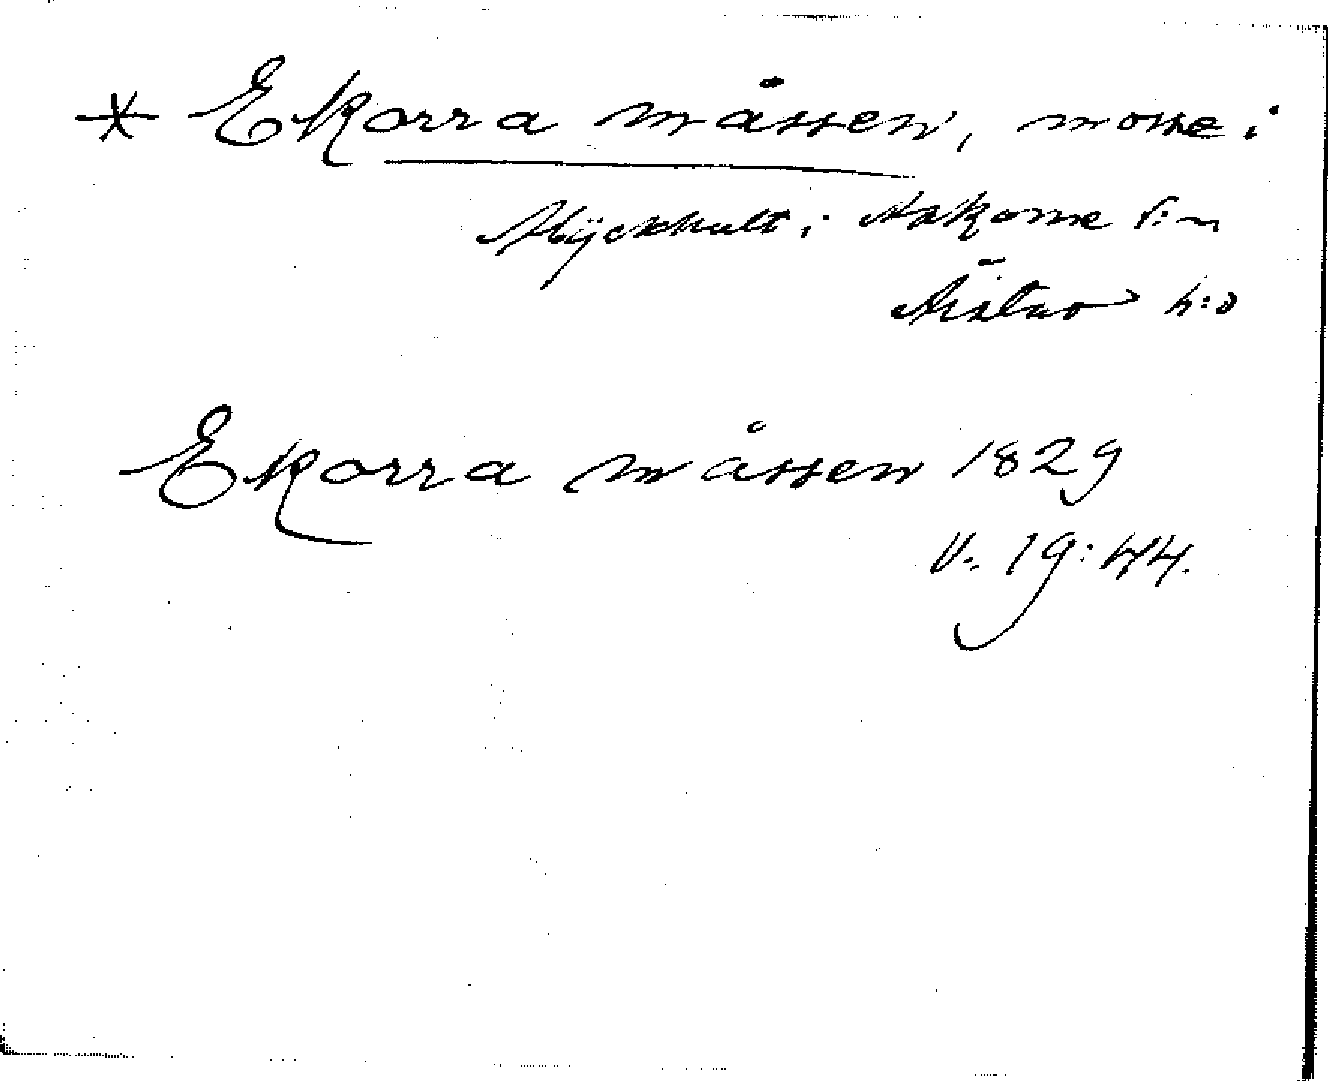 * Ekorra måssen, mosse i
Myckhult i Askome s:n
Årstad h:d
Ekorra måssen 1829
V. 19:44.